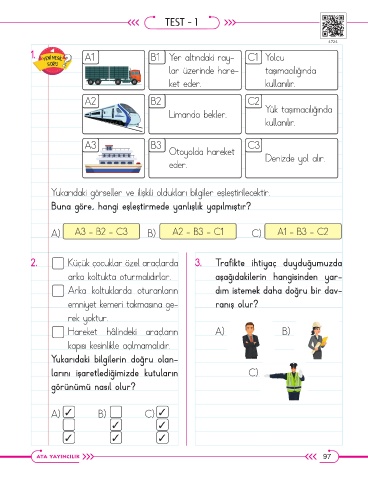 TEST - 1
1.
A1
B1 Yer altındaki ray-
lar üzerinde hare-
ket eder.
C1 Yolcu
taşımacılığında
kullanılır.
A2
B2
Limanda bekler.
C2
Yük taşımacılığında
kullanılır.
A3
B3
Otoyolda hareket
eder.
C3
Denizde yol alır.
Yukarıdaki görseller ve ilişkili oldukları bilgiler eşleştirilecektir.
Buna göre, hangi eşleştirmede yanlışlık yapılmıştır?
A) A3 - B2 - C3 B) A2 - B3 - C1 C) A1 - B3 - C2
2.
Küçük çocuklar özel araçlarda
arka koltukta oturmalıdırlar.
Arka koltuklarda oturanların
emniyet kemeri takmasına ge-
rek yoktur.
Hareket hâlindeki araçların
kapısı kesinlikle açılmamalıdır.
Yukarıdaki bilgilerin doğru olan-
larını işaretlediğimizde kutuların
görünümü nasıl olur?
A) ✓ B) C) ✓
✓ ✓
✓ ✓ ✓
3. Trafikte ihtiyaç duyduğumuzda
aşağıdakilerin hangisinden yar-
dım istemek daha doğru bir dav-
ranış olur?
A) B)
C)
ATA YAYINCILIK
97